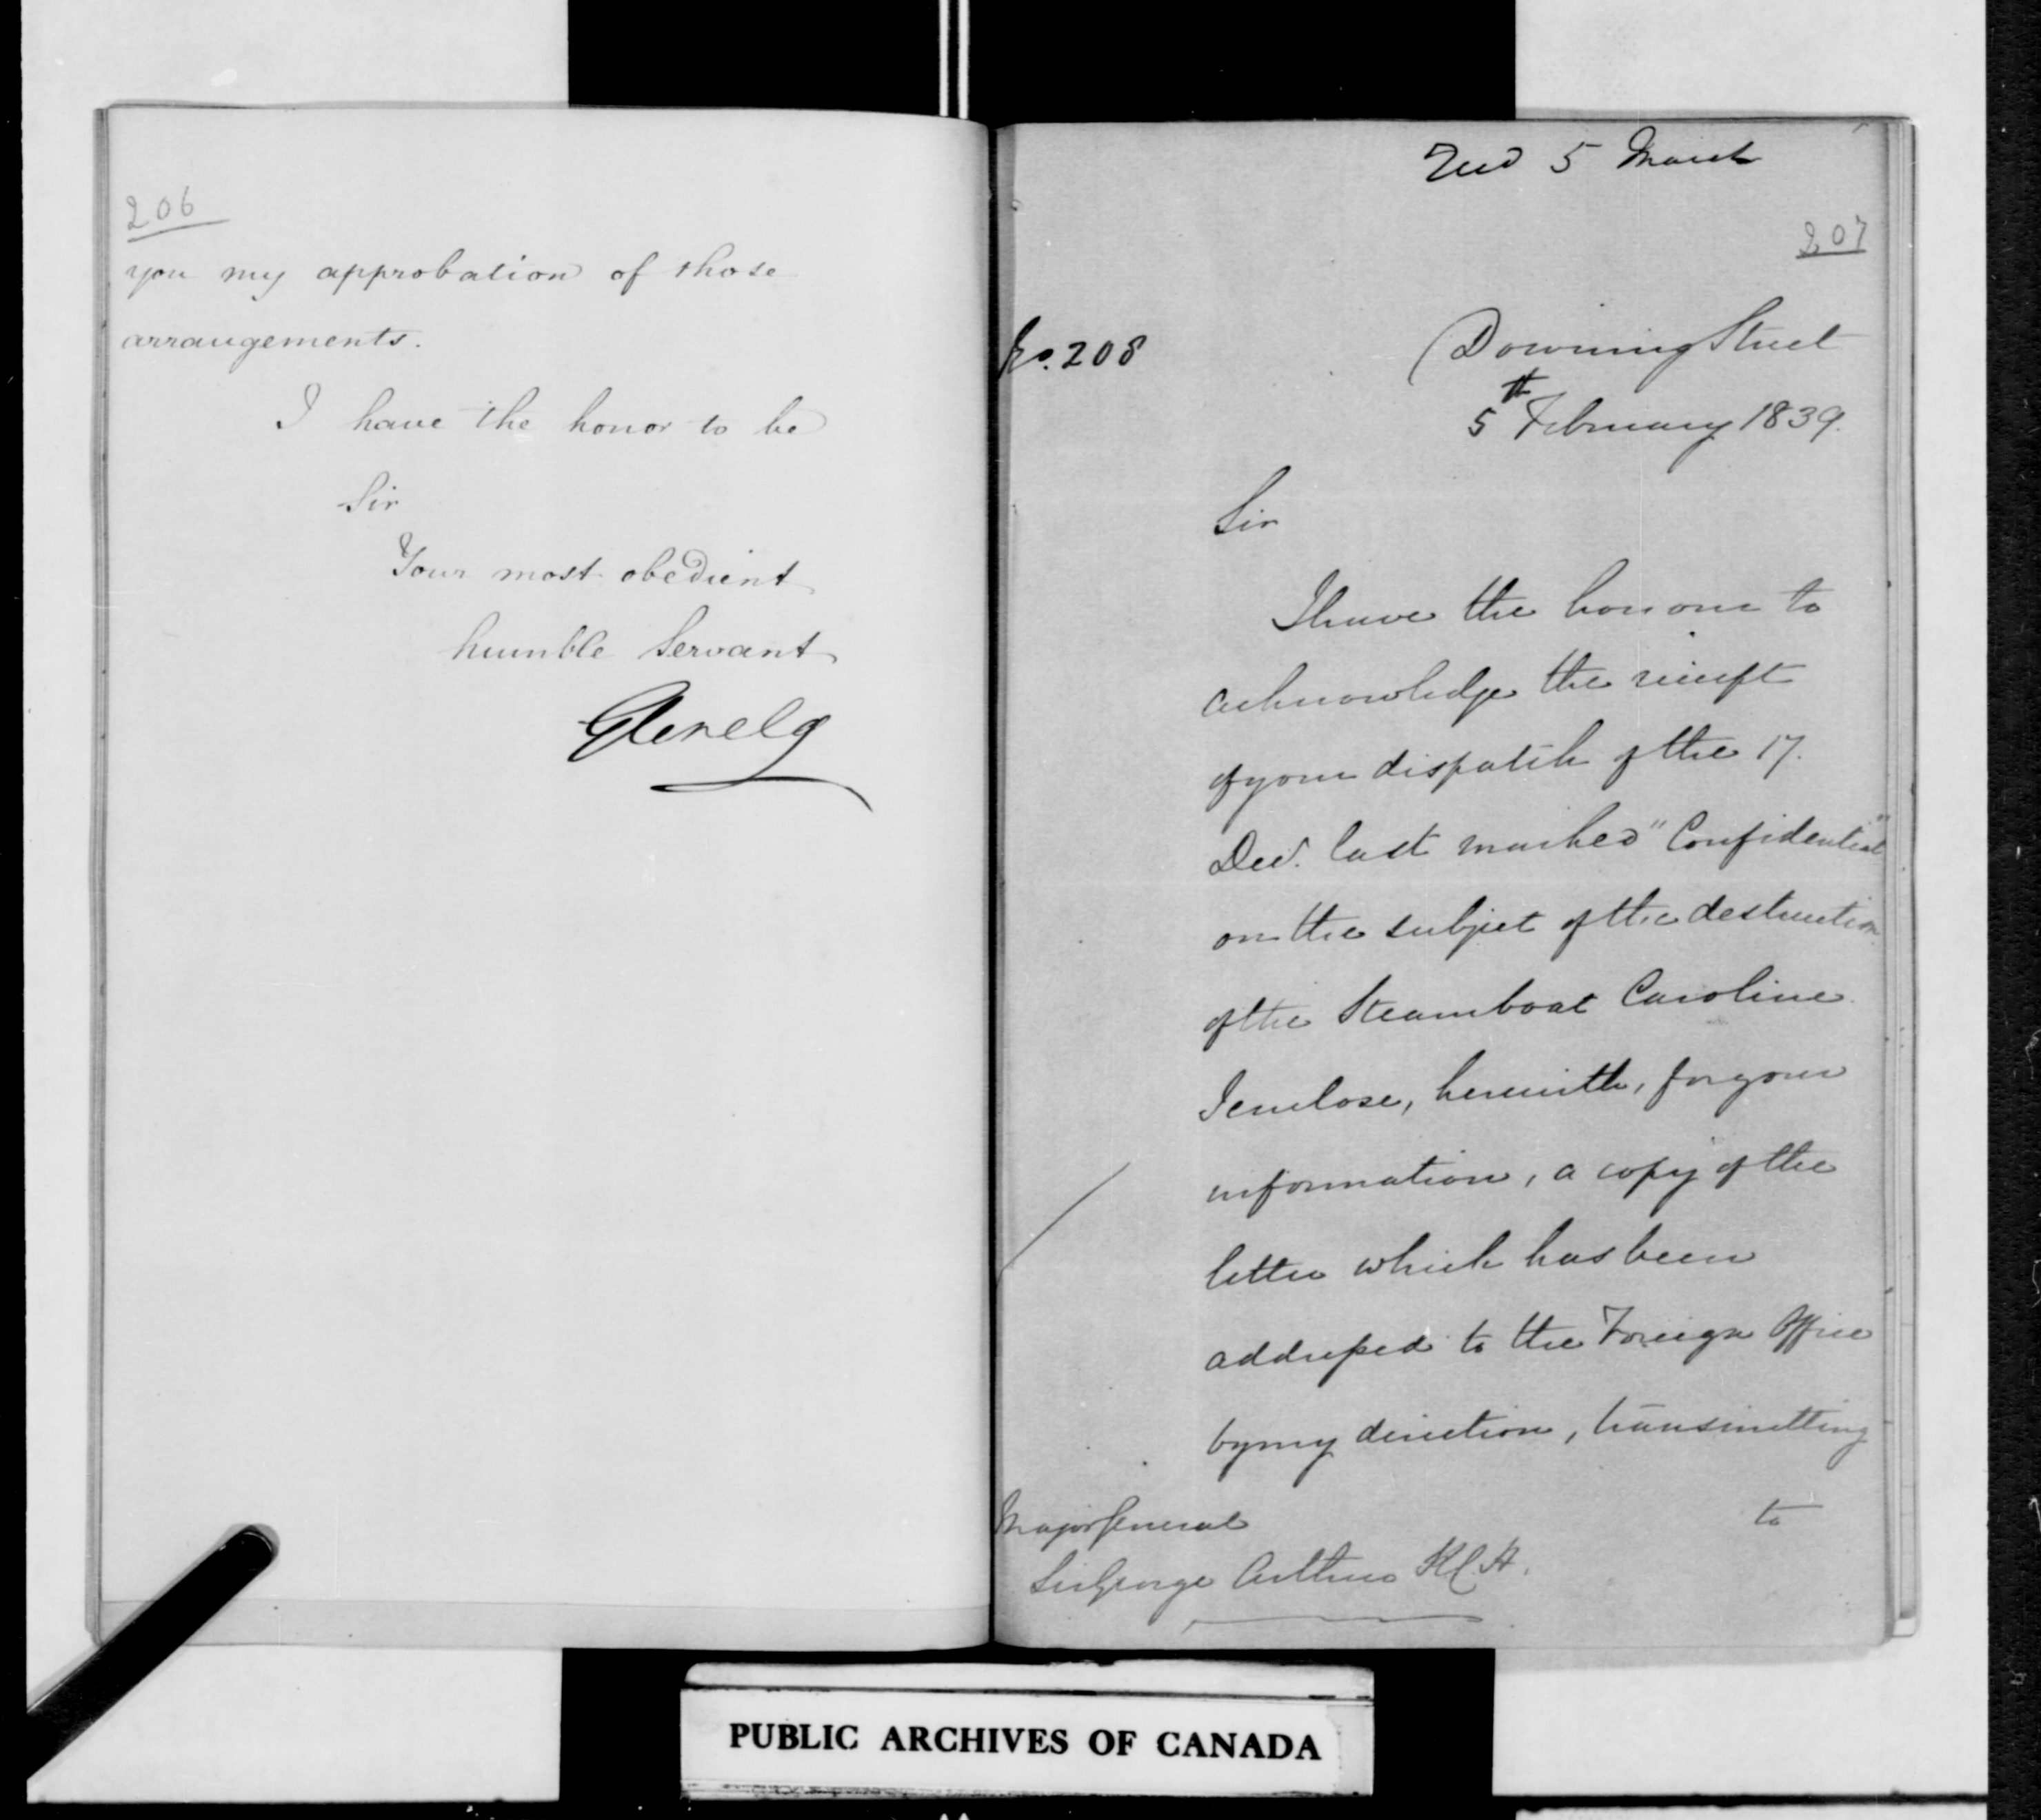 206
you my approbation of those
arrangements.
I have the honor to be
Sir
Your most obedient
humble Servant
Glenelg
Recd 5 March
207
No. 208
Downing Street
5th February 1839.
Sir
I have the honour to
acknowledge the receipt
of your dispatch of the 17.
Decr. last marked "Confidential"
on the subject of the destruction
of the Steamboat Caroline
I enclose, herewith, for your
information, a copy of the
letter which has been
addressed to the Foreign Office
by my direction, transmitting
to
Major General
Sir George Arthur K.C.H.
PUBLIC ARCHIVES OF CANADA